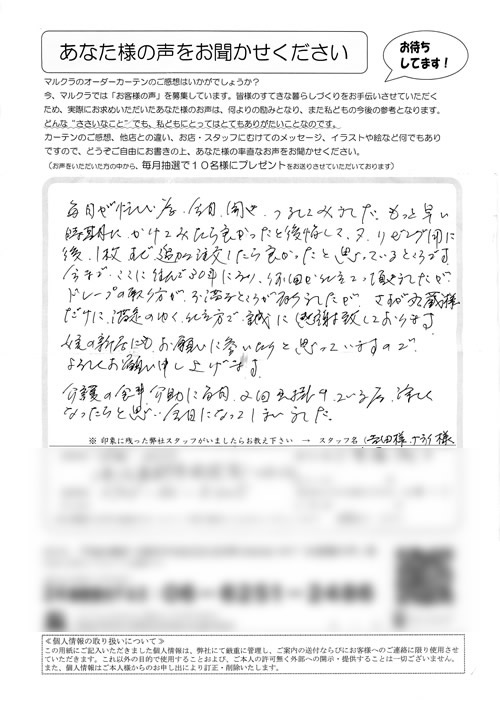 あなた様の声をお聞かせください
お待ち
してます！
マルクラのオーダーカーテンのご感想はいかがでしょうか？
今、マルクラでは「お客様の声」を募集しています。皆様のすてきな暮らしづくりをお手伝いさせていただく
ため、実際にお求めいただいたあなた様のお声は、何よりの励みとなり、また私どもの今後の参考となります。
どんな“ささいなこと”でも、私どもにとってはとてもありがたいことなのです。
カーテンのご感想、他店との違い、お店・スタッフにむけてのメッセージ、イラストや絵など何でもあり
ますので、どうぞご自由にお書きの上、あなた様の率直なお声をお聞かせください。
（お声をいただいた方の中から、毎月抽選で１０名様にプレゼントをお送りさせていただいております）
毎日が忙しい為、今日、開き、つるしてみました。もっと早い
時期に、かけてみたら良かったと後悔して、又、リビング用に
後、1枚まど追加注文したら良かったと思っているところです
今まで、ここに住んで30年になり、
ドレープの取り方が、不満なところが有りましたが、さすが丸蔵様
だけに、満足のゆく仕立方で、誠に感謝致しております
娘の新居にも、お願いに参いたりと思っていますので、
よろしくお願い申し上げます。
介護の全介助に毎日、
なったらと思い今日になってしまいました。
※ 印象に残った弊社スタッフがいましたらお教え下さい → スタッフ名（
様
06-6251-2486
≪個人情報の取り扱いについて≫
この用紙にご記入いただきました個人情報は、弊社にて厳重に管理し、ご案内の送付ならびにお客様へのご連絡に限り使用させ
ていただきます。これ以外の目的で使用することおよび、ご本人の許可無く外部への開示・提供することは一切ございません。
また、個人情報はご本人様からのお申し出により訂正・削除いたします。